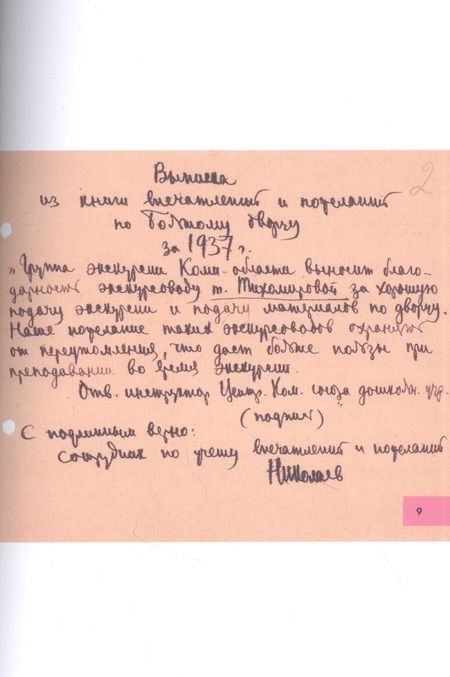 Выписка
2
из книги впечатлений и пожеланий
по Большому дворцу
за 1937 г.
"Группа экскурсии Коми-области выносит благо-
дарность экскурсоводу т. Тихомировой за хорошую
подачу экскурсии и подачу материалов по дворцу.
Наше пожелание таких экскурсоводов охранять
от переутомления, что даст больше пользы при
преподавании во время экскурсии.
Отв. инструктор Центр. Ком. союза дошкольн. учр.
(подпись)"
С подлинным верно:
сотрудник по учету впечатлений и пожеланий
Николаев
9